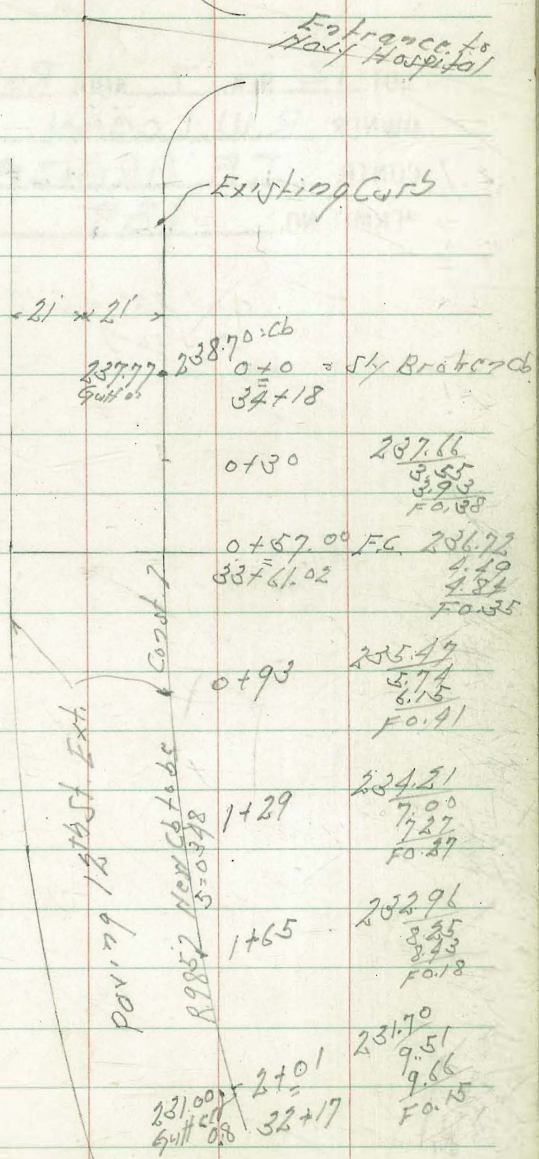 Entrance to
Navy Hospital
Existing Curb
21' 21'
238.70=cb
237.77
Gutter
0+0 = Sly Broken Cb
34+18
0+30
237.66
3.55
3.93
F0.38
0+57.00 E.C.
33+61.02
236.72
4.49
4.84
F0.35
Const.
0+93
235.47
5.74
6.15
F0.41
1+29
234.21
7.00
7.27
F0.27
1+65
232.96
8.25
8.43
F0.18
2+01
32+17
231.70
9.51
9.66
F0.15
231.00
Gutter
0.8
Paving 12th St Ext.
New Cb to be